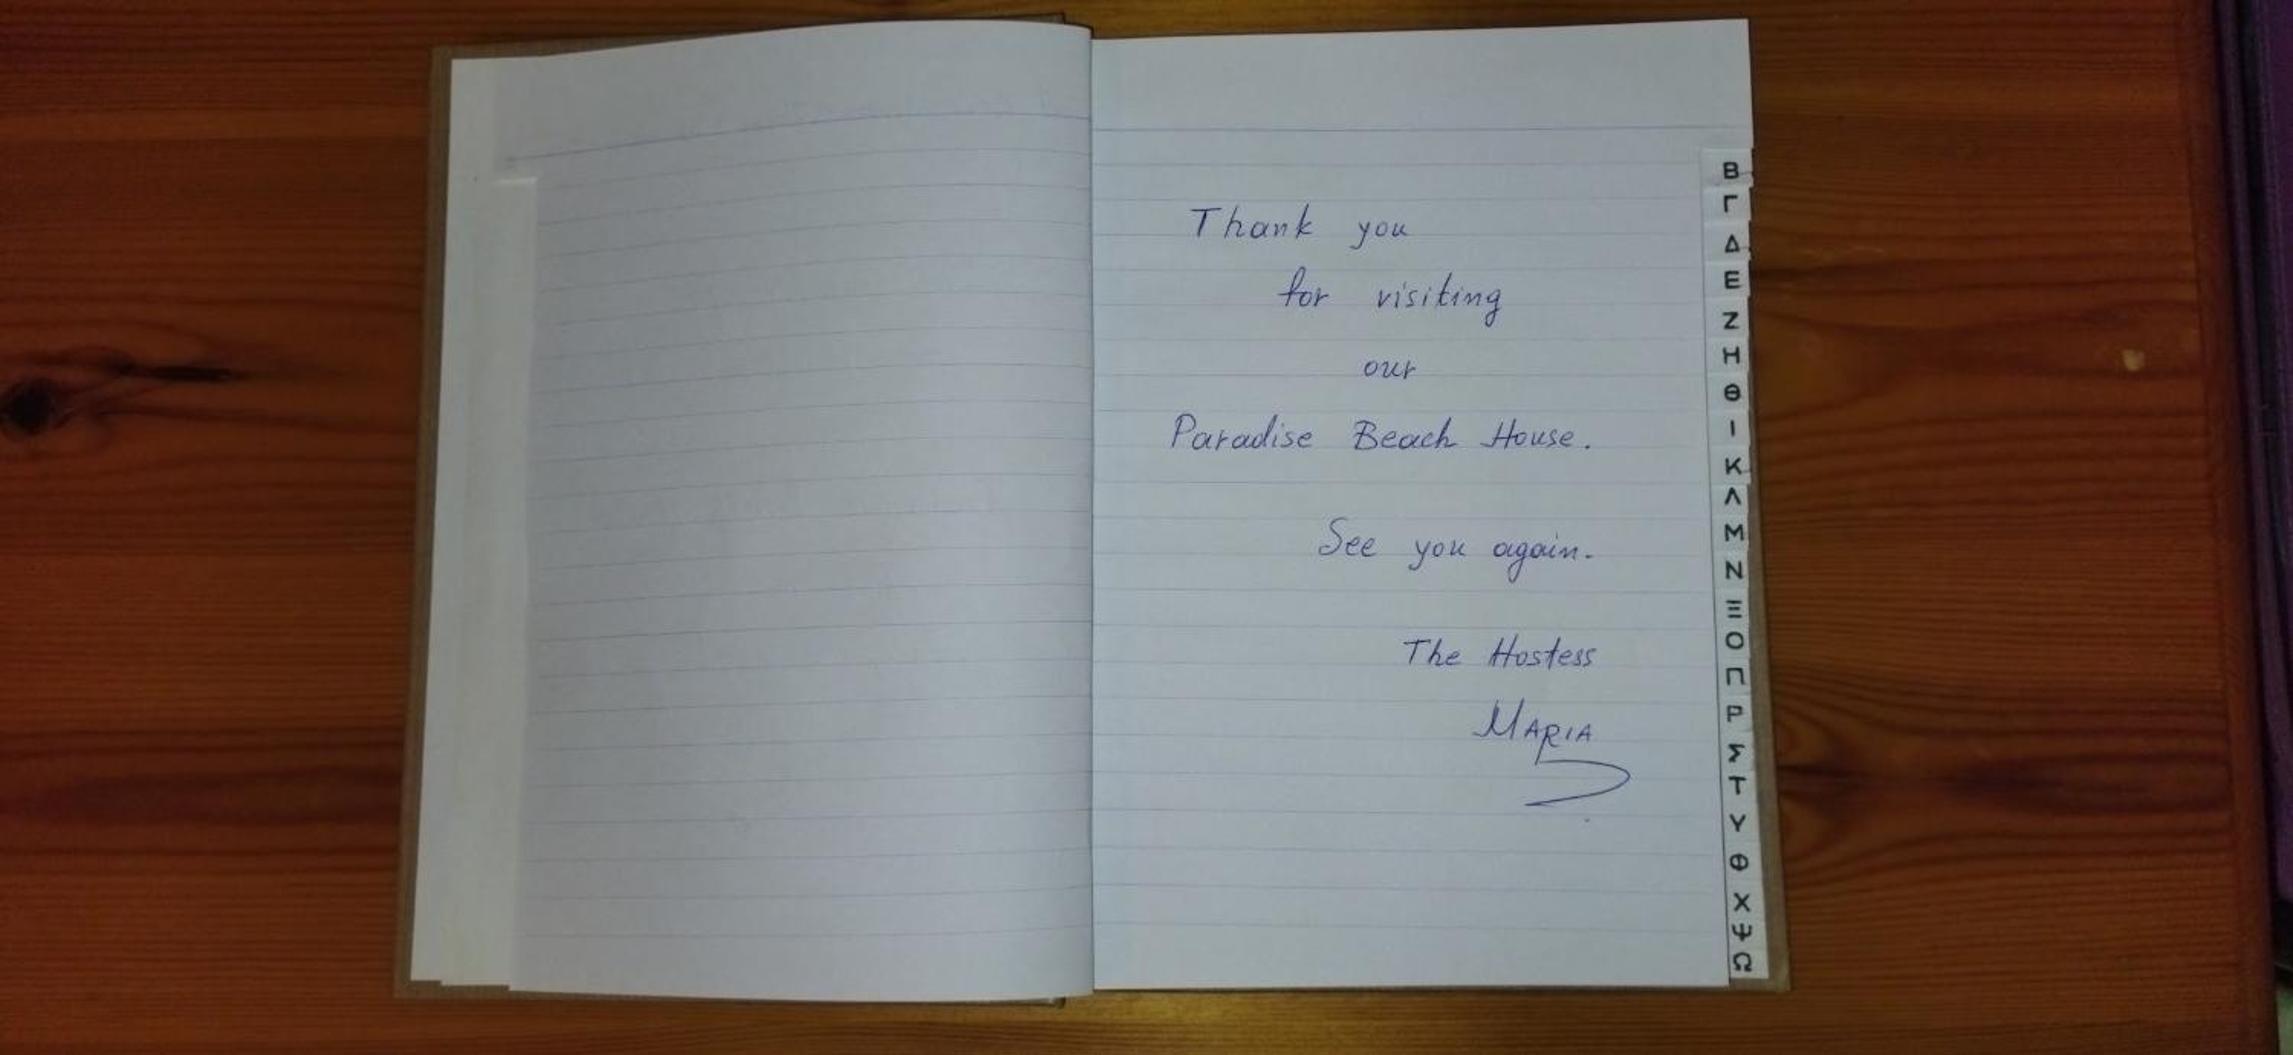 Thank you
for visiting
our
Paradise Beach House.
See you again.
The Hostess
MARIA
Β
Γ
Δ
Ε
Ζ
Η
Θ
Ι
Κ
Λ
Μ
Ν
Ξ
Ο
Π
Ρ
Σ
Τ
Υ
Φ
Χ
Ψ
Ω